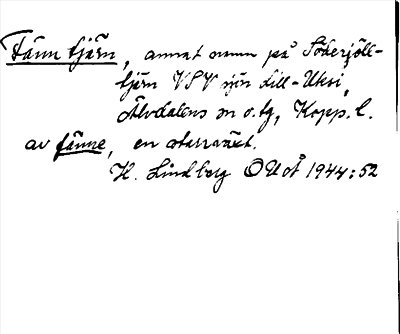 Fänn tjärn, annat namn på Söderjöll-
tjärn VSV ifrån Lill-Uksi,
Älvdalens sn o. tg, Kopp. l.
av fänne, en starrväxt.
K. Lindberg OUoÅ 1944:52